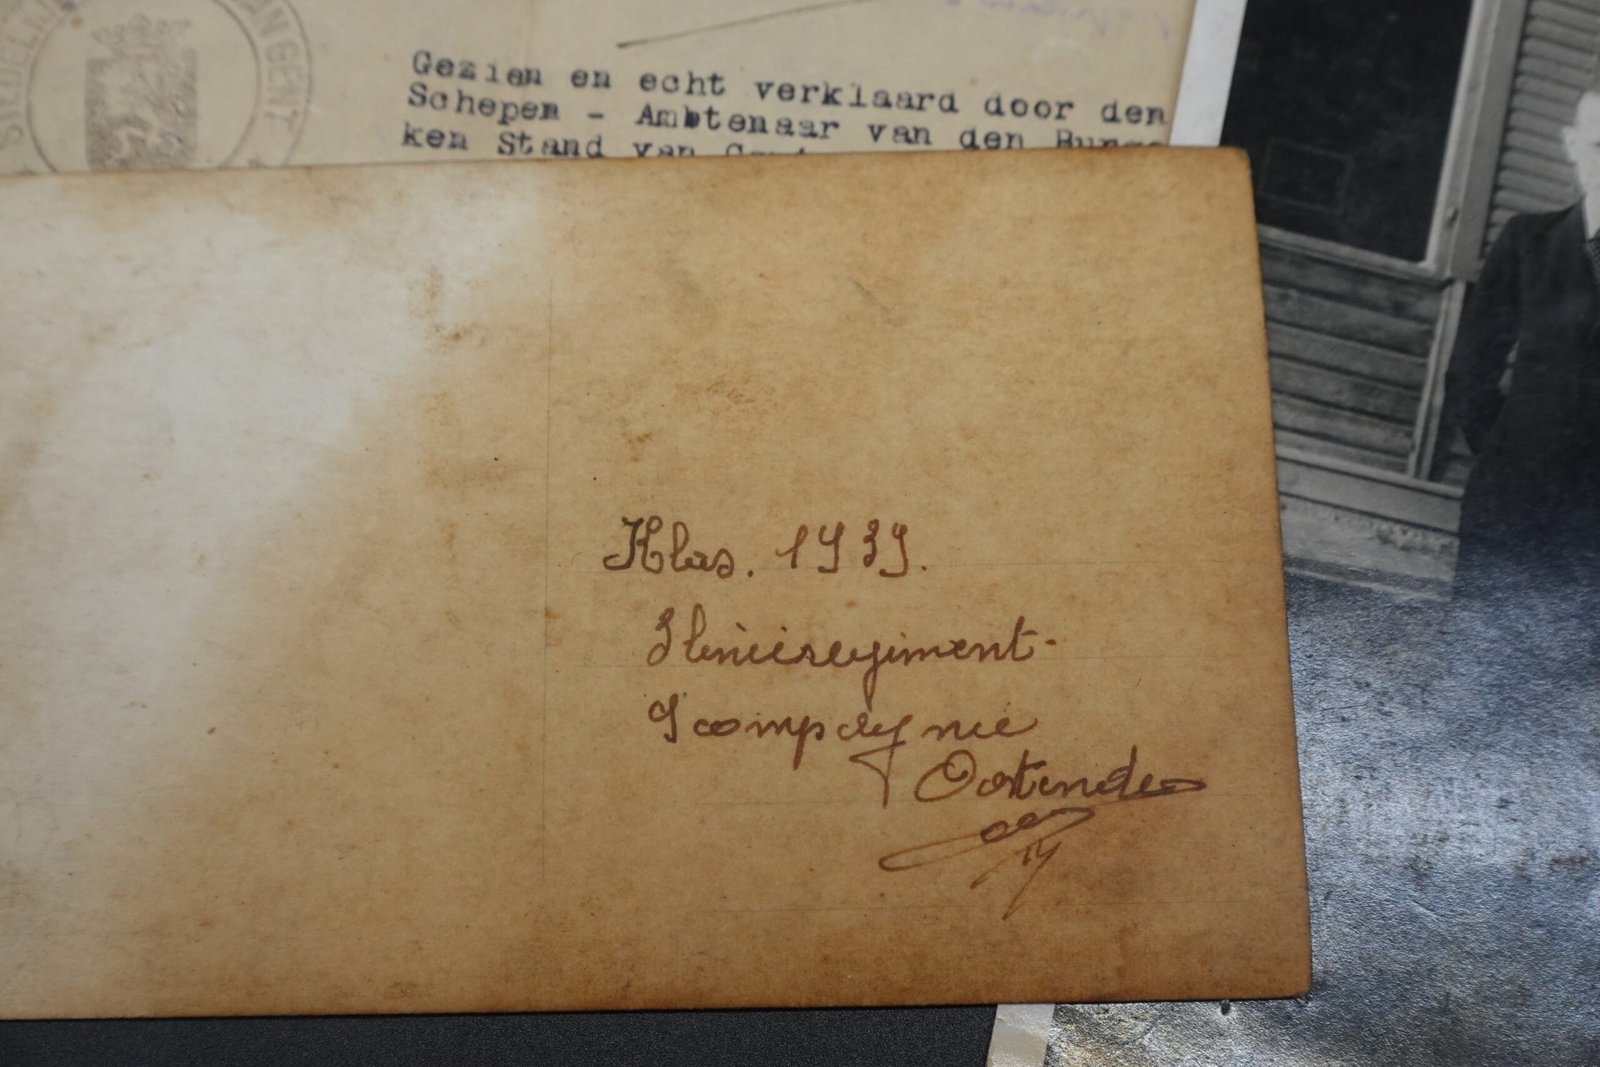 STEDELIJK VAN GENT
Gezien en echt verklaard door den
Schepen - Ambtenaar van den Burge
ken Stand van Gent
Klas. 1939.
3 linieregiment-
9 compagnie
Oostende